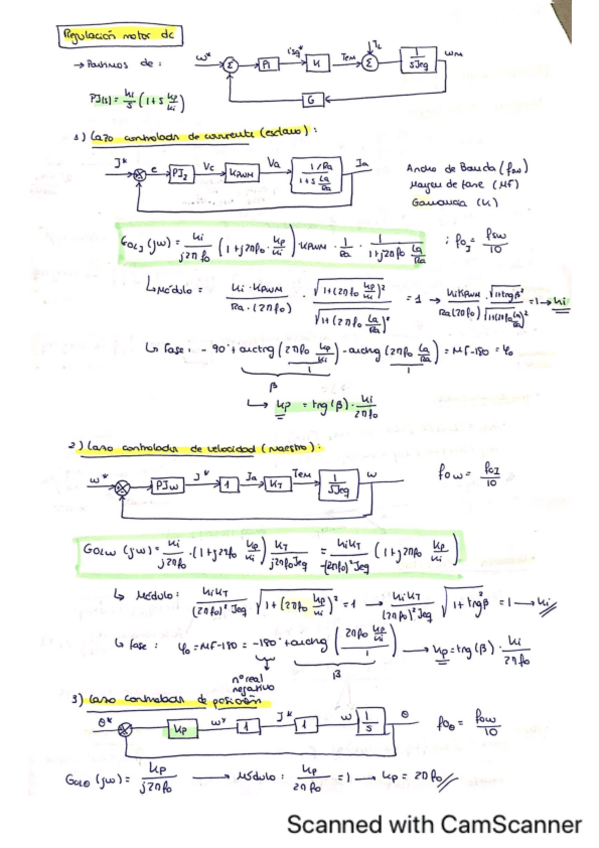 Regulación motor de
→ Partimos de :
ω* Σ PI isq* K Tem Σ TL 1/sJeq ωm
G
PI(s) = ki/s (1+s kp/ki)
1) Lazo controlador de corriente (esclavo) :
J* e PI_I Vc KPWM Va (1/Ra)/(1+s La/Ra) Ia
Ancho de Banda (fsw)
Margen de fase (MF)
Ganancia (K)
GOLI (jw) = ki/(j2πfo) (1+j2πfo · kp/ki) · KPWM · 1/Ra · 1/(1+j2πfo La/Ra) ; foI = fsw/10
↳ Módulo = (ki · KPWM)/(Ra · (2πfo)) · √(1+(2πfo kp/ki)²)/√(1+(2πfo La/Ra)²) = 1 → (kiKPWM)/(Ra(2πfo)) · √(1+tngβ²)/√(1+(2πfo La/Ra)²) = 1 → ki
↳ Fase : - 90° + arctng (2πfo kp/ki /1) - arctng (2πfo La/Ra /1) = MF-180 = φo
β
↳ kp = tng(β) · ki/2πfo
2) Lazo controlador de velocidad (maestro) :
ω* PIω J* 1 Ia KT Tem 1/sJeq ω
foω = foI/10
GOLω (jω) = ki/(j2πfo) · (1+j2πfo kp/ki) KT/(j2πfoJeq) = kiKT/(-(2πfo)²Jeq) (1+j2πfo kp/ki)
↳ Módulo : kiKT/((2πfo)² Jeq) √(1+(2πfo kp/ki)²) = 1 → kiKT/((2πfo)² Jeq) √(1+tng²β) = 1 → ki
↳ fase : φo = MF-180 = -180° + arctng (2πfo kp/ki /1) → kp = tng(β) · ki/2πfo
nº real
negativo
β
3) Lazo controlador de posición
θ* kp ω* 1 J* 1 ω 1/s θ
foθ = foω/10
GOLθ (jω) = kp/j2πfo → Módulo : kp/2πfo = 1 → kp = 2πfo
Scanned with CamScanner